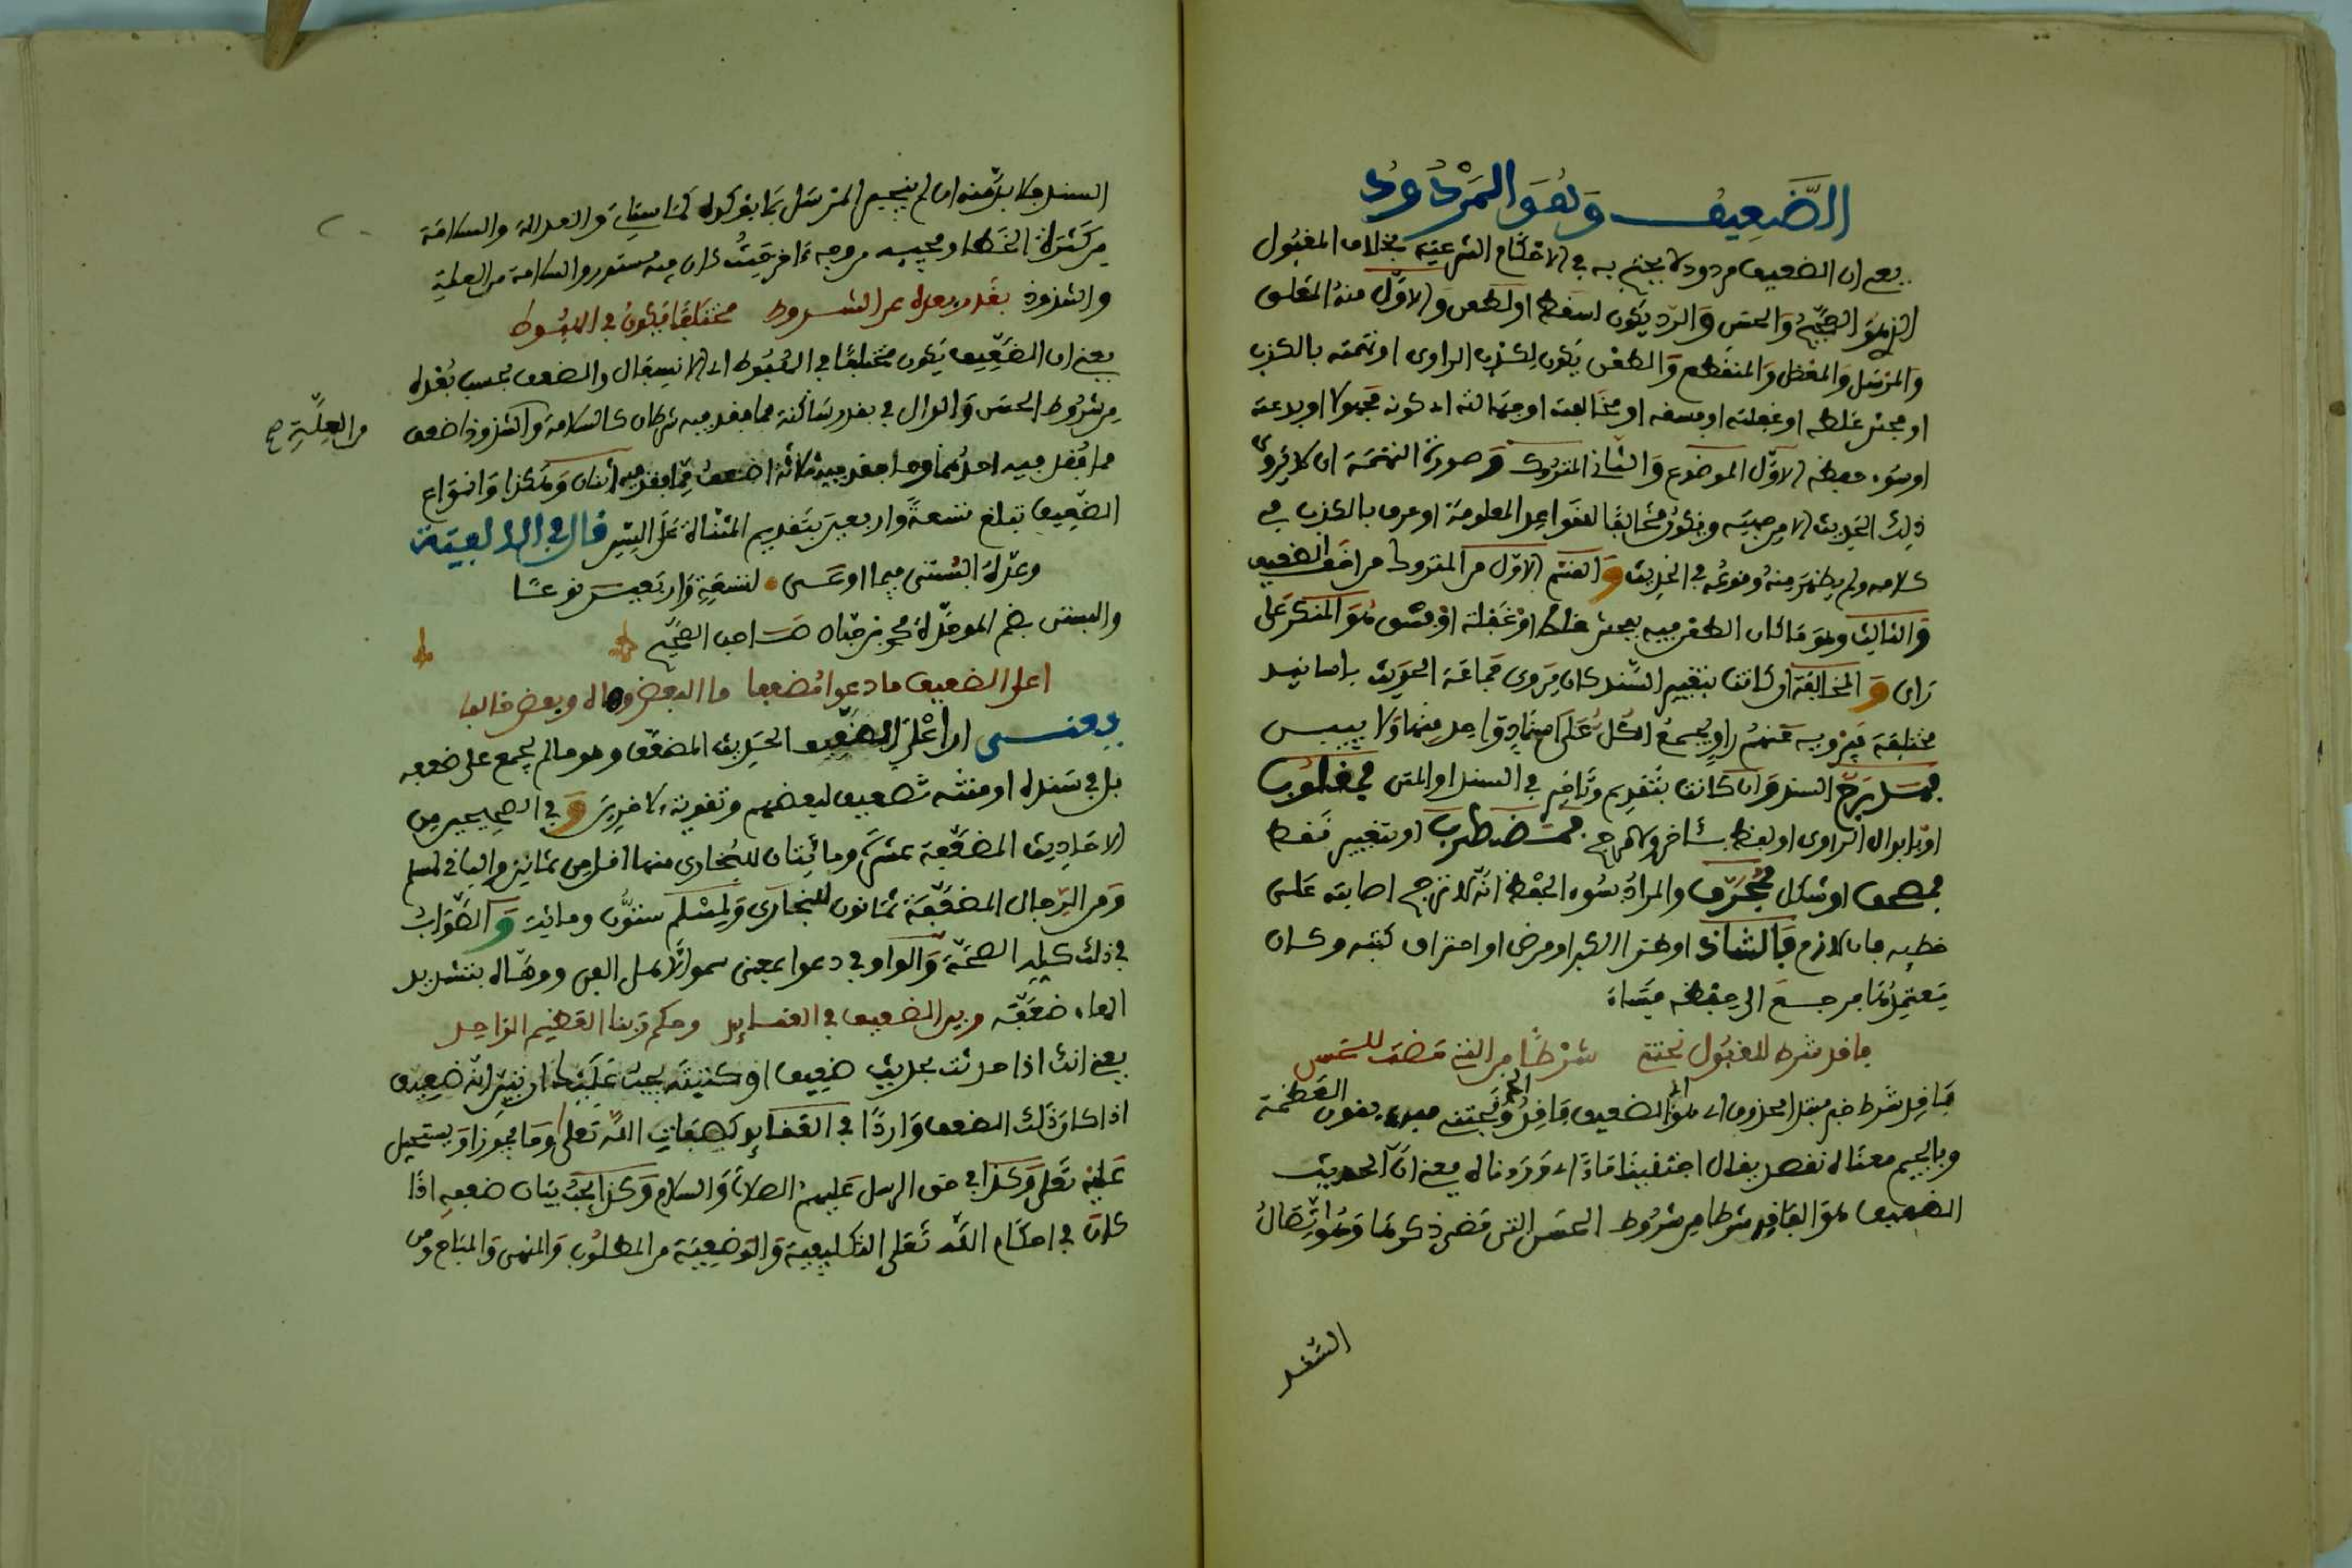 الضَّعِيف وَهُوَ المَرْدُودُ
يعنى ان الضعيف مردود لا يحتج به في الاحكام الشرعية بخلاف المقبول
الذى هو الصحيح والحسن والرد يكون لسقط او لطعن والاول منه المعلق
والمرسل والمعضل والمنقطع والطعن يكون لكذب الراوى او تهمته بالكذب
او فحش غلطه او غفلته او فسقه او مخالفته او جهالته اى كونه مجهولا او بدعة
او سوء حفظه الاول الموضوع والثانى المتروك وصورة التهمة ان لا يُروى
ذلك الحديث الا من جهته ويكون مخالفا للقواعد المعلومة او عرف بالكذب في
كلامه ولم يظهر منه وقوعه في الحديث والقسم الاول من المتروك من اخف الضعيف
والثالث وهو ما كان الطعن فيه بفحش غلط او غفلة او فسق هو المنكر على
راى والمخالفة ان كانت بتغيير السند كان يروى جماعة الحديث باسانيد
مختلفة فيرويه عنهم راو يجمع الكل على اسناد واحد منها ولا يبين
فمدرج السند وان كانت بتقديم وتاخير في السند او المتن فمقلوب
او بابدال الراوى او لفظ بئاخر ولا مرجح فمضطرب او بتغيير نقط
فمصحف او شكل فمحرف والمراد بسوء الحفظ انه لا ترجح اصابته على
خطئه فان لازم فالشاذ او طرا لكبر او مرض او احتراق كتبه وكان
يعتمدها فرجع الى حفظه فساء
فاقد شرط للقبول تجتنى شرطا من التى مضت للحسن
فاقد شرط خبر مبتدإ محذوف اى هو اى الضعيف فاقد وتجتنى
وبالجيم معناه
الضعيف هو الفاقد شرطا من شروط الحسن التى مضى ذكرها وهو اتصال
السند
السند فلا بد منه ان لم ينجبر المرسل بما يؤكده كما سياتى والعدالة والسلامة
من كثرة الخطا ومجيئه من وجه ءاخر حيث كان فيه مستور والسلامة من العلة
والشذوذ بقدر بعده عن الشروط مختلفا يكون في الهبوط
يعنى ان الضعيف يكون مختلفا في الهبوط اى الانسفال والضعف بحسب بعده
من شروط الحسن
من العلة صح
مما فقد فيه احدهما وما فقد فيه ثلاثة اضعف مما فقد فيه اثنان وهكذا وانواع
الضعيف تبلغ تسعة واربعين بتقديم المثناة على السين قال في الالفية
وعده البستى فيما اوعى لتسعة واربعين نوعا
والبستى بضم الموحدة هو ابن حبان صاحب الصحيح
اعلى الضعيف ما دعوا مضعفا ما البعض وهاه وبعض خالفا
يعنى ان اعلى الضعيف الحديث المضعف وهو ما لم يجمع على ضعفه
بل في سنده او متنه تضعيف لبعضهم وتقوية لاخرين وفي الصحيحين من
الاحاديث المضعفة عشرة ومائتان للبخارى منها اقل من ثمانين والباقى لمسلم
ومن الرجال المضعفة ثمانون للبخارى ولمسلم ستون ومائة والصواب
في ذلك كله الصحة والواو في دعوا بمعنى سموا لاهل الفن ووهاه بتشديد
الهاء ضعفه وبين الضعيف في العقائد وحكم ربنا العظيم الواحد
يعنى انك اذا حدثت بحديث ضعيف او كتبته يجب عليك ان تبين انه ضعيف
اذا كان ذلك الضعف واردا في العقائد كصفات الله تعلى وما يجوز او يستحيل
عليه تعلى وكذا في حق الرسل عليهم الصلاة والسلام وكذا يجب بيان ضعفه اذا
كان في احكام الله تعلى التكليفية والوضعية من المطلوب والمنهى والمباح ومن